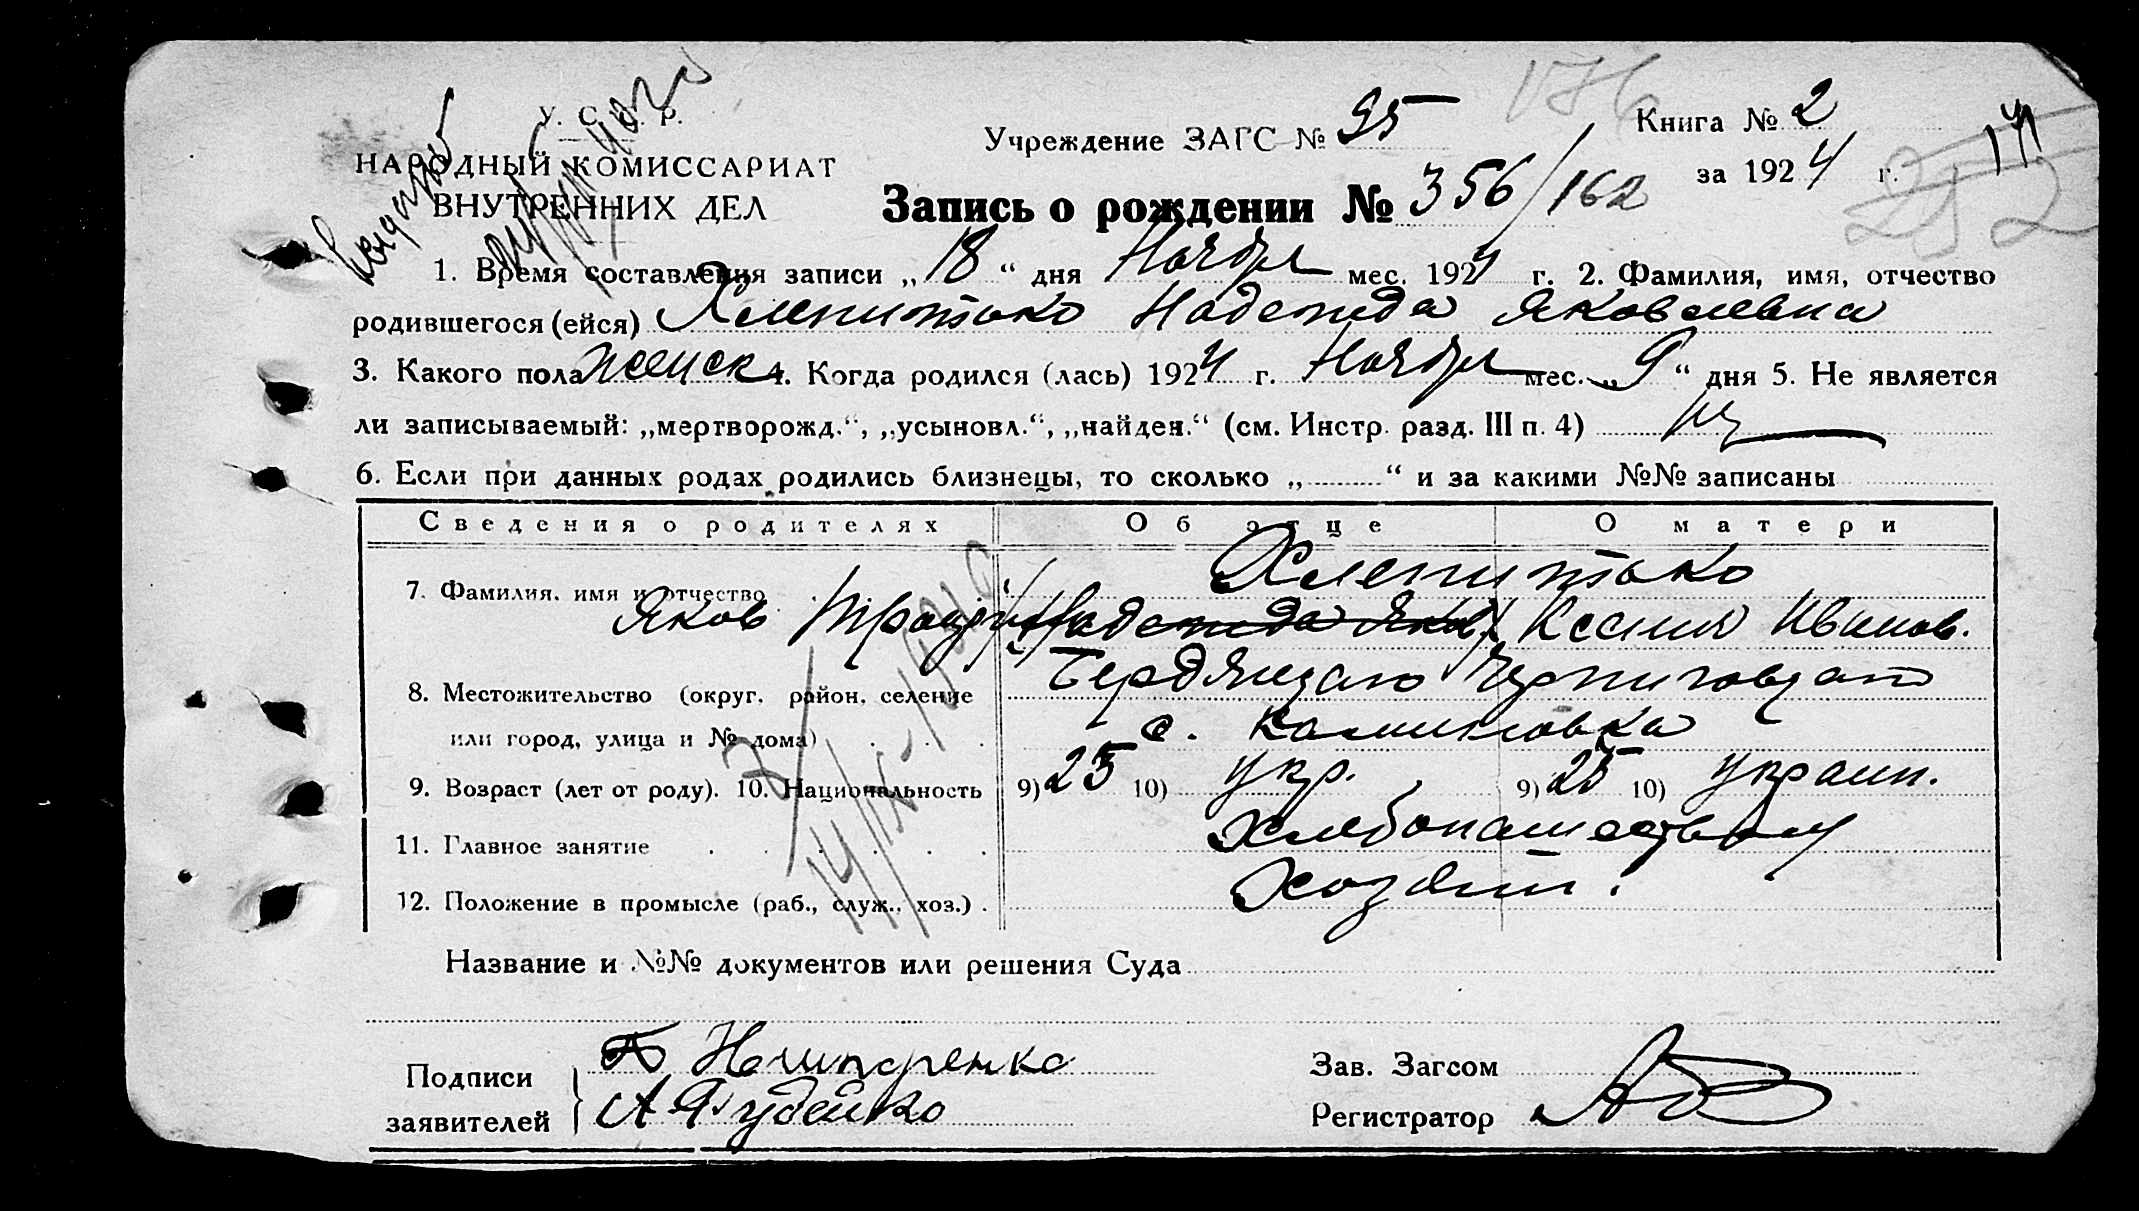 У. С. С. Р.
НАРОДНЫЙ КОМИССАРИАТ
ВНУТРЕННИХ ДЕЛ
176
Учреждение ЗАГС № 95
Книга № 2
за 1924 г.
171
252
Запись о рождении № 356/162
1. Время составления записи „18“ дня Ноября мес. 1924 г. 2. Фамилия, имя, отчество
родившегося (ейся) Хлепитько Надежда Яковлевна
3. Какого пола женск 4. Когда родился (лась) 1924 г. Ноября мес. „9“ дня 5. Не является
ли записываемый: „мертворожд.“, „усыновл.“, „найден.“ (см. Инстр. разд. III п. 4) нет
6. Если при данных родах родились близнецы, то сколько „..........“ и за какими №№ записаны
Сведения о родителях Об отце О матери
Хлепитько
7. Фамилия, имя и отчество
Яков Надежда Яков Ксения Иванов.
8. Местожительство (округ, район, селение
или город, улица и № дома)
Бердянцкаго Черниговцкаго
с. Калиновка
9. Возраст (лет от роду). 10. Национальность 9) 25 10) укр. 9) 25 10) украин.
11. Главное занятие Хлебопашеством
12. Положение в промысле (раб., служ., хоз.) Хозяин.
Название и №№ документов или решения Суда
Подписи
заявителей
Нечипоренко
Зав. Загсом
Регистратор